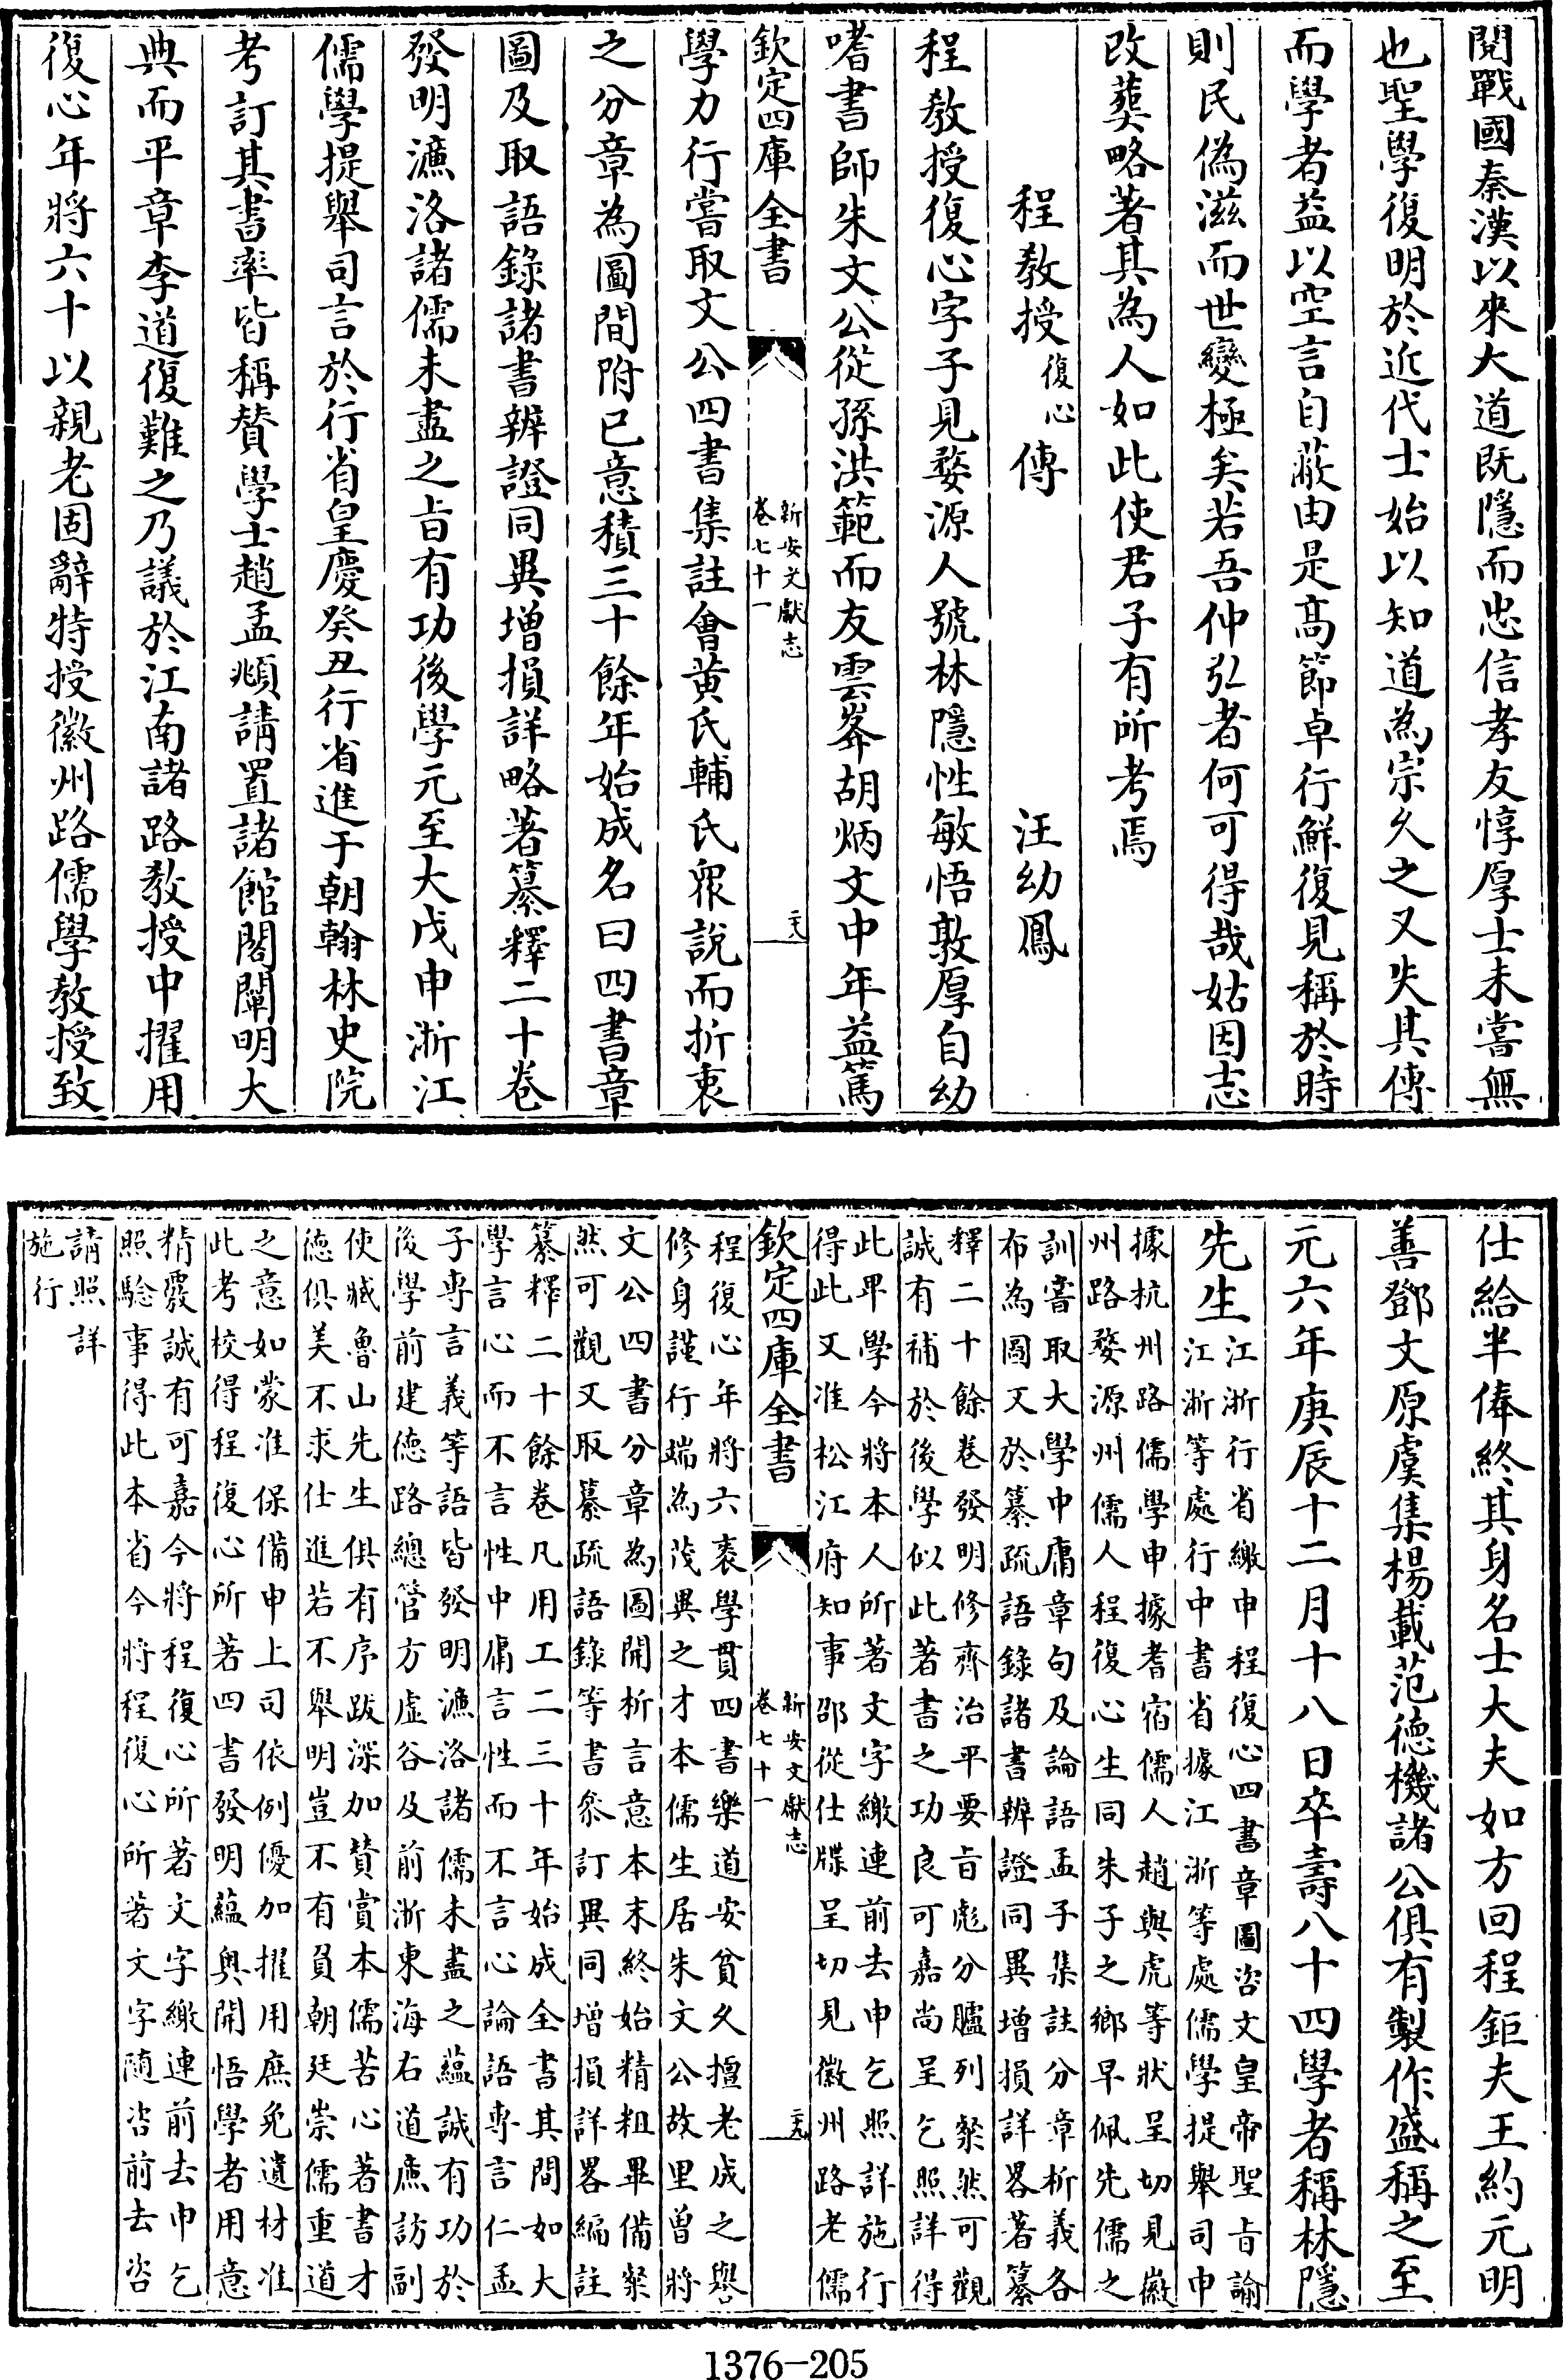 閱戰國秦漢以來大道既隱而忠信孝友惇厚士未嘗無
也聖學復明於近代士始以知道為宗久之又失其傳
而學者益以空言自蔽由是髙節卓行鮮復見稱於時
則民偽滋而世變極矣若吾仲弘者何可得哉姑因志
改葬略著其為人如此使君子有所考焉
程教授復心傳 汪幼鳳
程教授復心字子見婺源人號林隱性敏悟敦厚自幼
嗜書師朱文公從孫洪範而友雲峯胡炳文中年益篤
欽定四庫全書 新安文獻志 卷七十一 二十八
學力行嘗取文公四書集註會黄氏輔氏衆說而折衷
之分章為圖間附已意積三十餘年始成名曰四書章
圖及取語錄諸書辨證同異增損詳略著纂釋二十卷
發明濂洛諸儒未盡之旨有功後學元至大戊申浙江
儒學提舉司言於行省皇慶癸丑行省進于朝翰林史院
考訂其書率皆稱賛學士趙孟頫請置諸館閣闡明大
典而平章李道復難之乃議於江南諸路教授中擢用
復心年將六十以親老固辭特授徽州路儒學教授致
仕給半俸終其身名士大夫如方回程鉅夫王約元明
善鄧文原虞集楊載范德機諸公俱有製作盛稱之至
元六年庚辰十二月十八日卒壽八十四學者稱林隱
先生江浙行省繳申程復心四書章圖咨文皇帝聖旨諭
江浙等處行中書省據江浙等處儒學提舉司申
據杭州路儒學申據耆宿儒人趙與虎等狀呈切見徽
州路婺源州儒人程復心生同朱子之鄉早佩先儒之
訓嘗取大學中庸章句及論語孟子集註分章析義各
布為圖又於纂疏語錄諸書辨證同異增損詳畧著纂
釋二十餘卷發明修齊治平要旨彪分臚列粲然可觀
誠有補於後學似此著書之功良可嘉尚呈乞照詳得
此卑學今將本人所著文字繳連前去申乞照詳施行
得此又准松江府知事邵從仕牒呈切見徽州路老儒
欽定四庫全書 新安文獻志 卷七十一 二十九
程復心年將六袠學貫四書樂道安貧久擅老成之譽
修身謹行端為茂異之才本儒生居朱文公故里曾將
文公四書分章為圖開析言意本末終始精粗畢備粲
然可觀又取纂疏語錄等書叅訂異同增損詳畧編註
纂釋二十餘卷凡用工二三十年始成全書其間如大
學言心而不言性中庸言性而不言心論語專言仁孟
子專言義等語皆發明濂洛諸儒未盡之蘊誠有功於
後學前建德路總管方虛谷及前浙東海右道亷訪副
使臧魯山先生俱有序跋深加賛賞本儒苦心著書才
德俱美不求仕進若不舉明豈不有負朝廷崇儒重道
之意如蒙准保備申上司依例優加擢用庶免遺材准
此考校得程復心所著四書發明蘊奥開悟學者用意
精覈誠有可嘉今將程復心所著文字繳連前去申乞
照騐事得此本省今將程復心所著文字随咨前去咨
請照詳
施行
1376-205